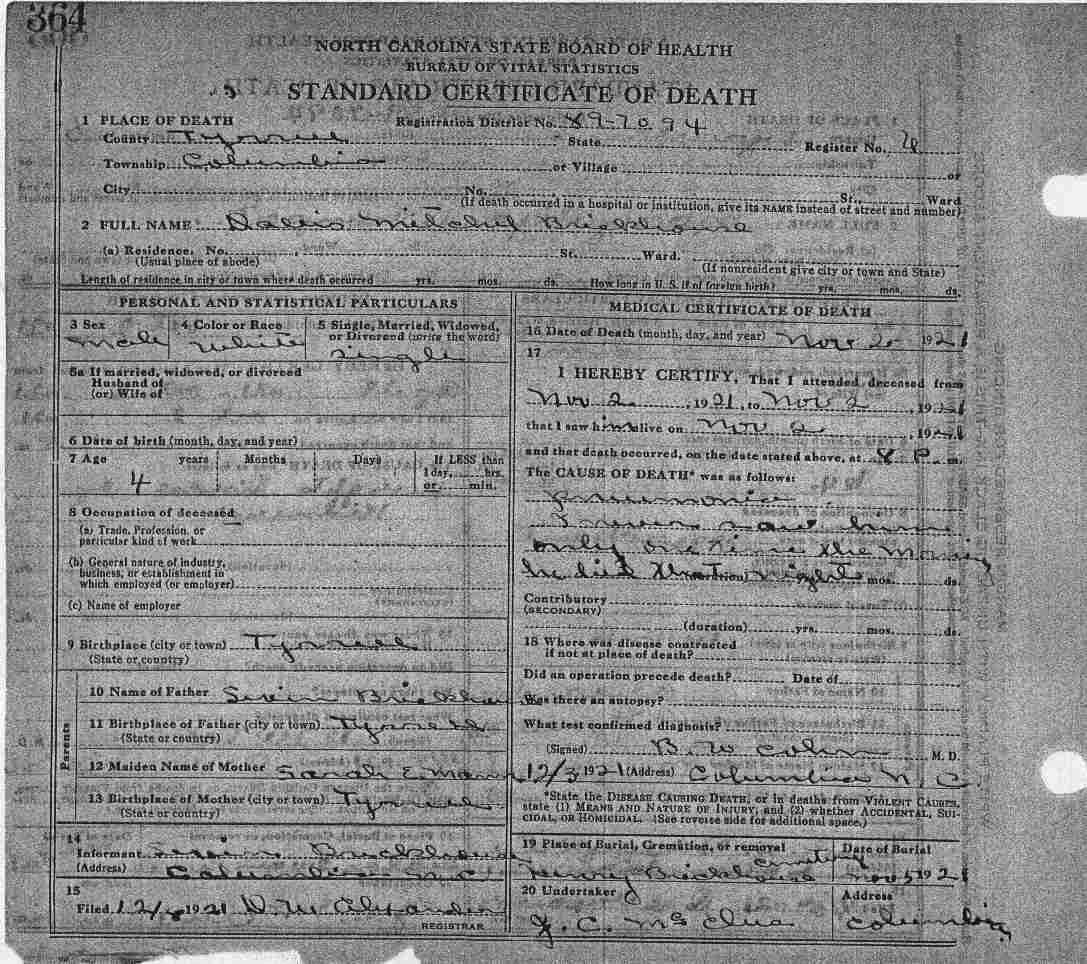 364
NORTH CAROLINA STATE BOARD OF HEALTH
BUREAU OF VITAL STATISTICS
STANDARD CERTIFICATE OF DEATH
1 PLACE OF DEATH Registration District No. 89-7094
County Tyrrell State Register No. 4
Township Columbia or Village or
City No. St., Ward
(If death occurred in a hospital or institution, give its NAME instead of street and number)
2 FULL NAME Mitchel Brickhouse
(a) Residence. No. St. Ward.
(Usual place of abode) (If nonresident give city or town and State)
Length of residence in city or town where death occurred yrs. mos. ds. How long in U. S. if of foreign birth? yrs. mos. ds.
PERSONAL AND STATISTICAL PARTICULARS
3 Sex 4 Color or Race 5 Single, Married, Widowed, or Divorced (write the word)
Male White Single
5a If married, widowed, or divorced
Husband of
(or) Wife of
6 Date of birth (month, day, and year)
7 Age years Months Days If LESS than 1 day, hrs. or min.
4
8 Occupation of deceased
(a) Trade, Profession, or particular kind of work
(b) General nature of industry, business, or establishment in which employed (or employer)
(c) Name of employer
9 Birthplace (city or town) Tyrrell
(State or country)
Parents
10 Name of Father Brickhouse
11 Birthplace of Father (city or town) Tyrrell
(State or country)
12 Maiden Name of Mother Sarah E. Mann
13 Birthplace of Mother (city or town) Tyrrell
(State or country)
14
Informant Brickhouse
(Address) Columbia N C
15
Filed 12/ 1921 D. W. Alexander
REGISTRAR
MEDICAL CERTIFICATE OF DEATH
16 Date of Death (month, day, and year) Nov 2 1921
17
I HEREBY CERTIFY, That I attended deceased from
Nov 2, 1921, to Nov 2, 1921
that I saw him alive on Nov 2, 1921
and that death occurred, on the date stated above, at 8 P. m.
The CAUSE OF DEATH* was as follows:
Pneumonia
I never saw him
only one time the morning
he died that night (duration) mos. ds.
Contributory
(SECONDARY)
(duration) yrs. mos. ds.
18 Where was disease contracted
if not at place of death?
Did an operation precede death? Date of
Was there an autopsy?
What test confirmed diagnosis?
(Signed) B. W. Cohn M. D.
12/3 1921 (Address) Columbia N. C.
*State the DISEASE CAUSING DEATH, or in deaths from VIOLENT CAUSES,
state (1) MEANS AND NATURE OF INJURY, and (2) whether ACCIDENTAL, SUI-
CIDAL, OR HOMICIDAL. (See reverse side for additional space.)
19 Place of Burial, Cremation, or removal Date of Burial
Henry Brickhouse Cemetery Nov 5 1921
20 Undertaker Address
J. C. McClees Columbia